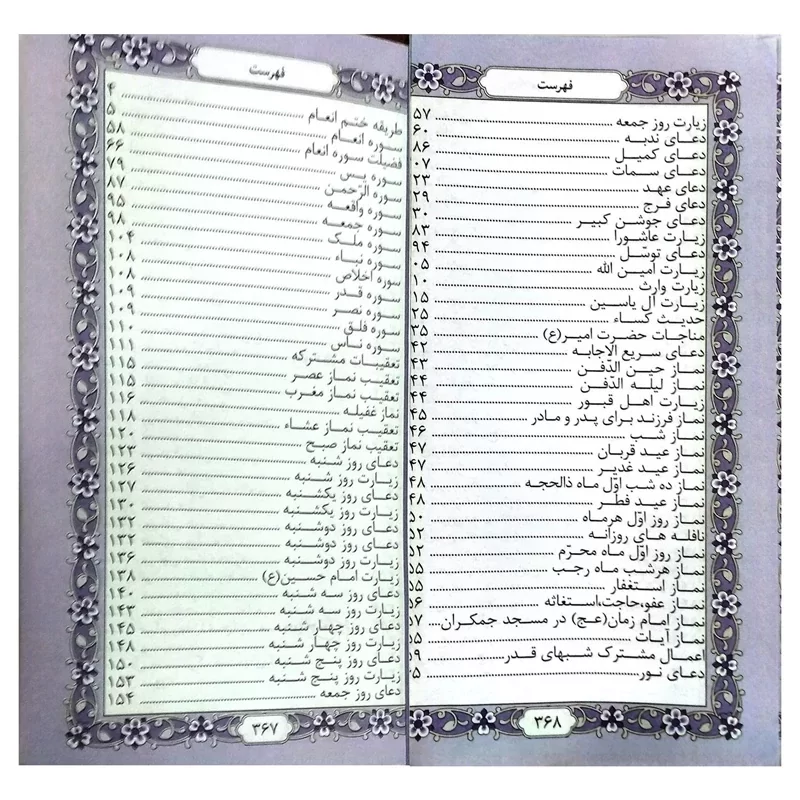 فهرست
طریقه ختم انعام ۴
سوره انعام ۵
فضیلت سوره انعام ۵۸
سوره یس ۶۶
سوره الرّحمن ۷۹
سوره واقعه ۸۷
سوره جمعه ۹۵
سوره ملک ۹۸
سوره نباء ۱۰۴
سوره اخلاص ۱۰۸
سوره قدر ۱۰۸
سوره نصر ۱۰۹
سوره فلق ۱۰۹
سوره ناس ۱۱۰
تعقیبات مشترکه ۱۱۱
تعقیب نماز عصر ۱۱۵
تعقیب نماز مغرب ۱۱۵
نماز غفیله ۱۱۶
تعقیب نماز عشاء ۱۱۸
تعقیب نماز صبح ۱۲۰
دعای روز شنبه ۱۲۳
زیارت روز شنبه ۱۲۶
دعای روز یکشنبه ۱۲۷
زیارت روز یکشنبه ۱۳۰
دعای روز دوشنبه ۱۳۲
دعای روز دوشنبه ۱۳۲
زیارت روز دوشنبه ۱۳۶
زیارت امام حسین(ع) ۱۳۸
دعای روز سه شنبه ۱۴۰
زیارت روز سه شنبه ۱۴۳
دعای روز چهار شنبه ۱۴۵
زیارت روز چهار شنبه ۱۴۸
دعای روز پنج شنبه ۱۵۰
زیارت روز پنج شنبه ۱۵۳
دعای روز جمعه ۱۵۴
۳۶۷
فهرست
زیارت روز جمعه ۵۷
دعای ندبه ۶۰
دعای کمیل ۸۶
دعای سمات ۰۷
دعای عهد ۲۳
دعای فرج ۲۹
دعای جوشن کبیر ۳۰
زیارت عاشورا ۸۳
دعای توسّل ۹۴
زیارت امین الله ۰۵
زیارت وارث ۱۰
زیارت آل یاسین ۱۵
حدیث کساء ۲۵
مناجات حضرت امیر(ع) ۳۵
دعای سریع الاجابه ۴۲
نماز حین الدّفن ۴۳
نماز لیله الدّفن ۴۴
زیارت اهل قبور ۴۴
نماز فرزند برای پدر و مادر ۴۵
نماز شب ۴۶
نماز عید قربان ۴۷
نماز عید غدیر ۴۷
نماز ده شب اوّل ماه ذالحجه ۴۸
نماز عید فطر ۴۸
نماز روز اوّل هرماه ۵۰
نافله های روزانه ۵۲
نماز روز اوّل ماه محرّم ۵۲
نماز هرشب ماه رجب ۵۵
نماز استغفار ۵۵
نماز عفو،حاجت،استغاثه ۵۶
نماز امام زمان(عج) در مسجد جمکران ۵۷
نماز آیات
اعمال مشترک شبهای قدر
دعای نور
۳۶۸